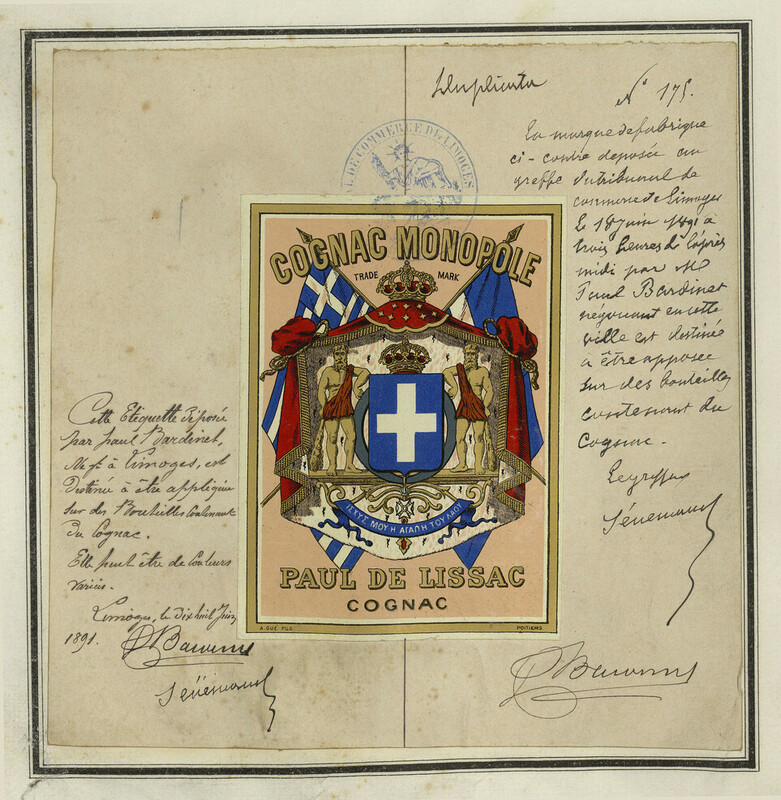 Duplicata
N° 175.
La marque de fabrique
ci-contre déposée au
greffe du tribunal de
commerce de Limoges
le 18 juin 1891 à
trois heures de l'après
midi par M.
Paul Bardinet
négociant en cette
ville est destinée
à être apposée
sur des bouteilles
contenant du
Cognac.
Sénémaud
AL DE COMMERCE DE LIMOGES
COGNAC MONOPOLE
TRADE MARK
ΙΣΧΥΣ ΜΟΥ Η ΑΓΑΠΗ ΤΟΥ ΛΑΟΥ
PAUL DE LISSAC
COGNAC
A. GUÉ FILS POITIERS
Cette Etiquette déposée
par paul Bardinet,
Nég.t à Limoges, est
destinée à être appliquée
sur des Bouteilles contenant
du Cognac.
Elle peut être de Couleurs
variées.
Limoges, le dix huit Juin
1891.
Sénémaud